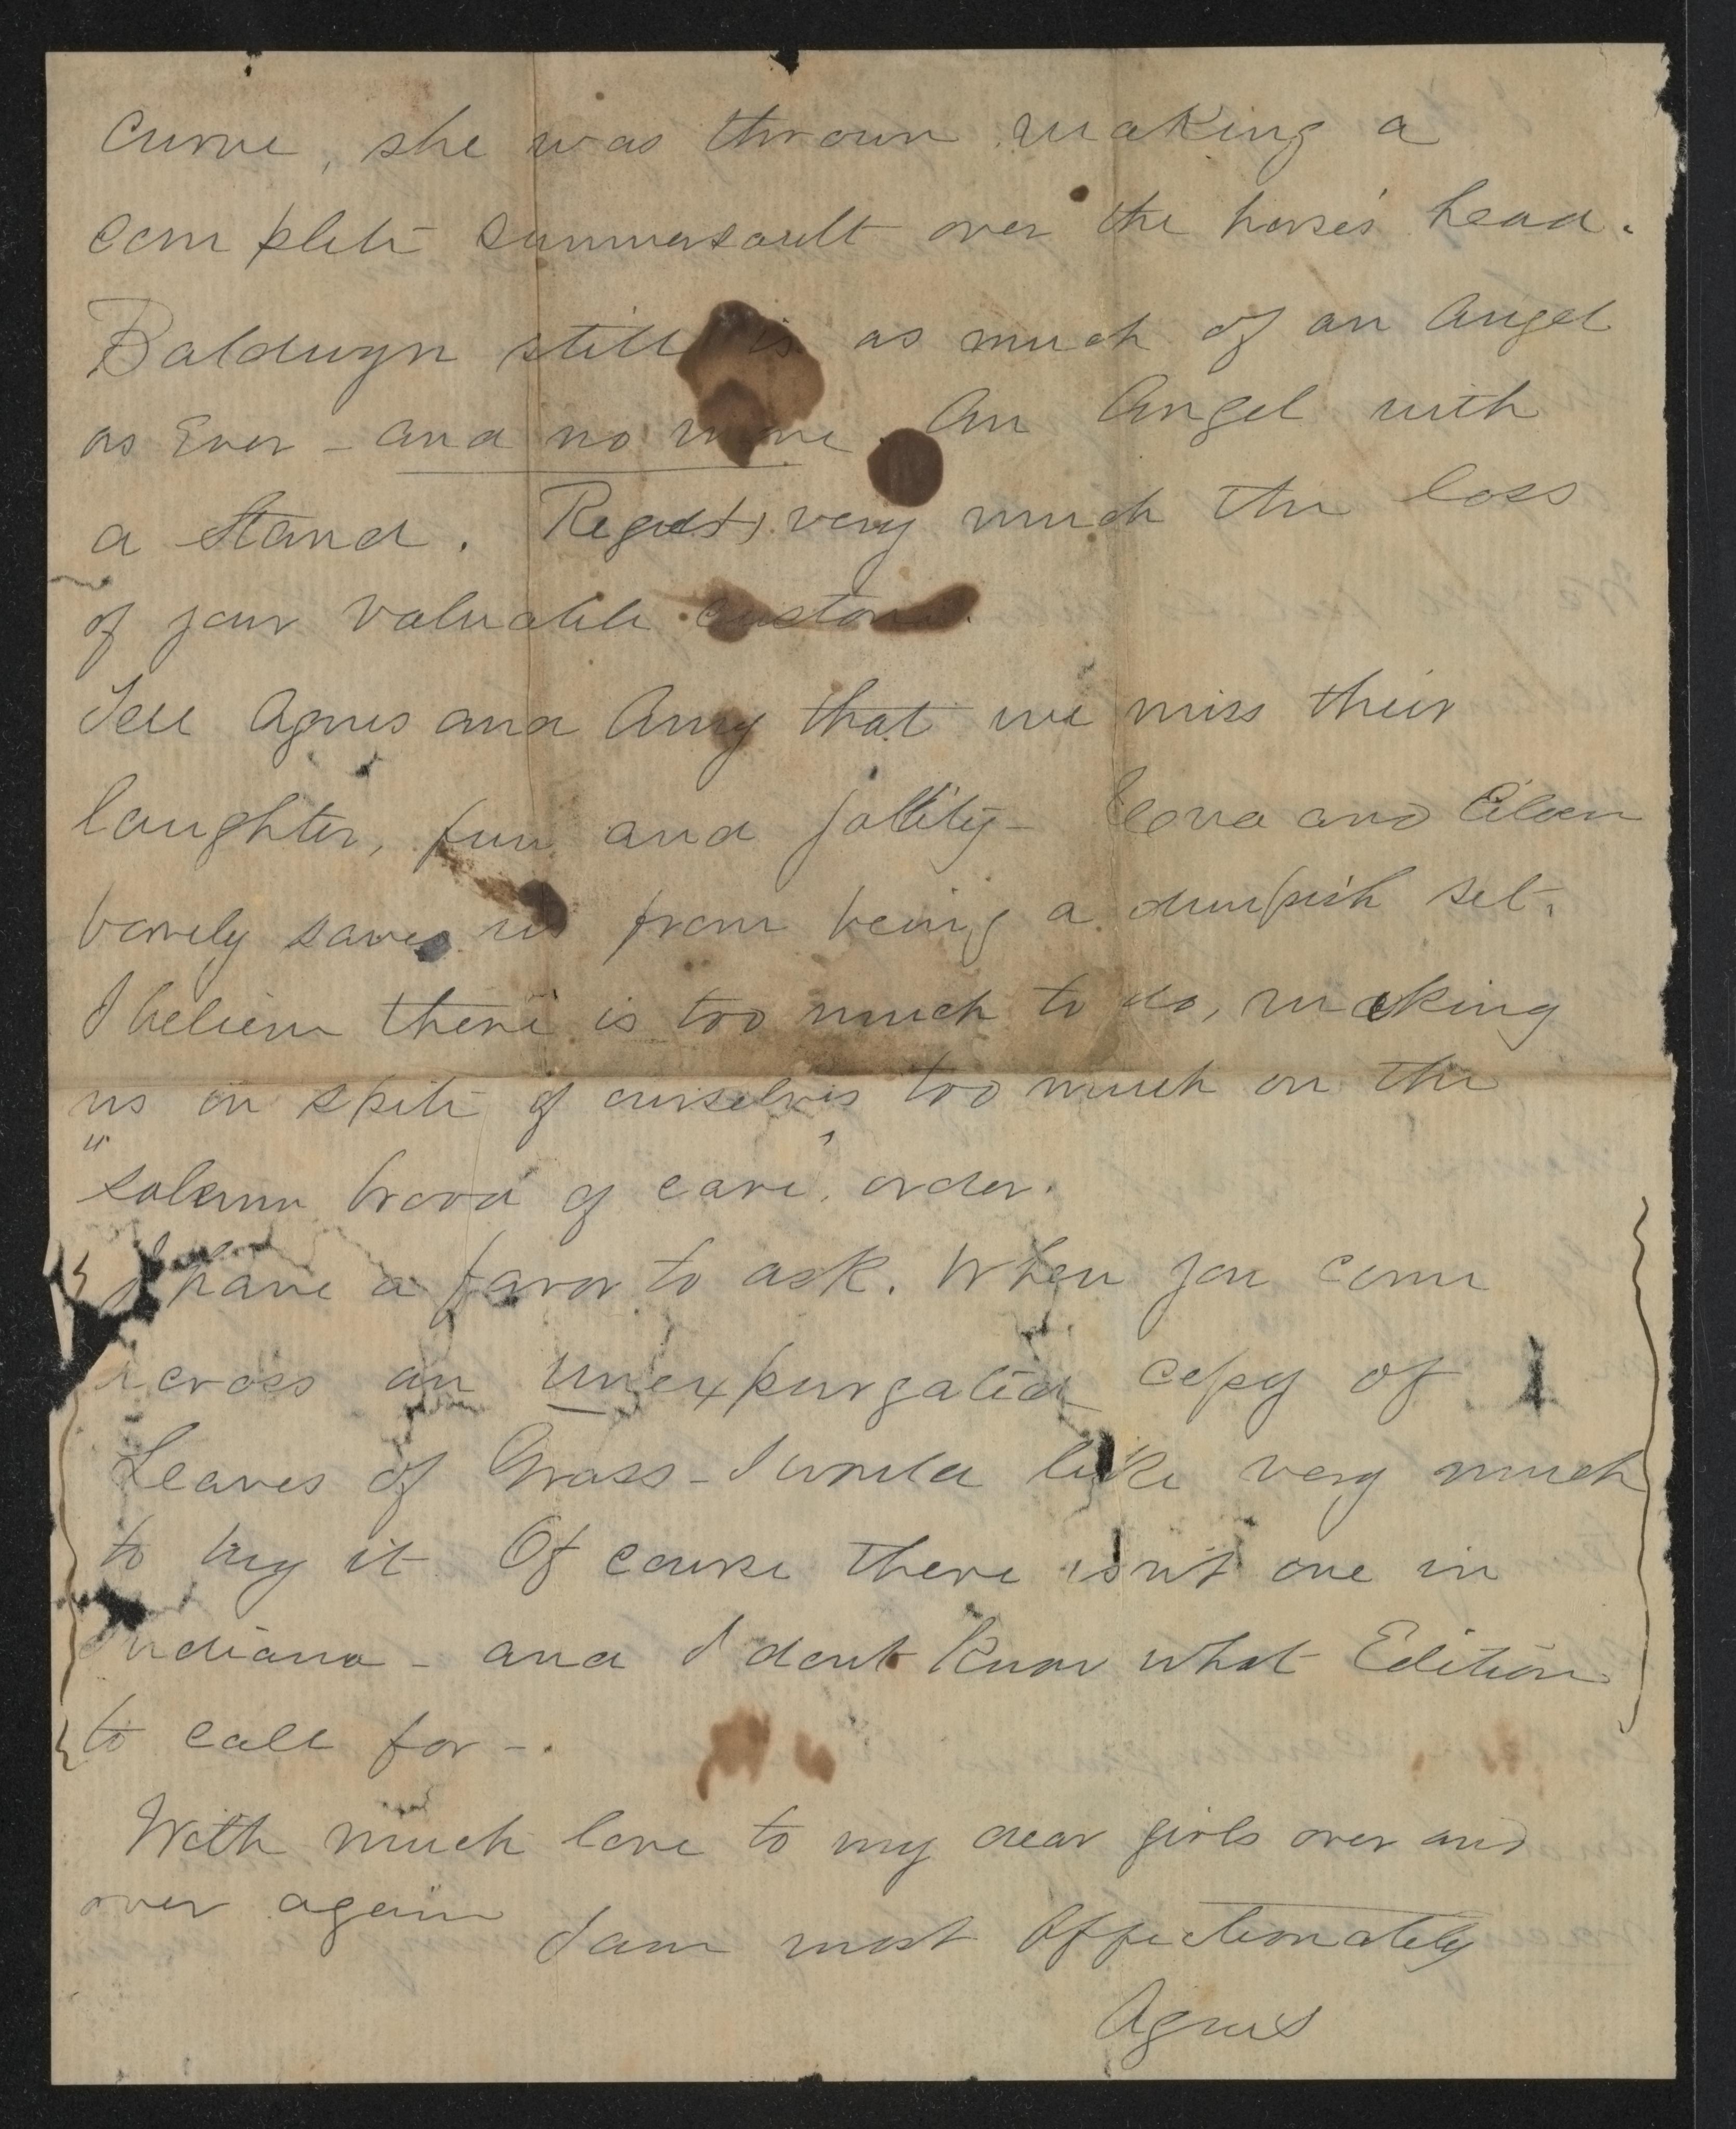 curve, she was thrown making a
complete summersault over the horse's head.
Baldwyn still is as much of an Angel
as Ever - and no more. An Angel with
a stand. Regrets very much the loss
of your valuable custom.
Tell Agnes and Amy that we miss their
laughter, fun and jollity - and Eileen
barely saves us from being a dumpish set.
I believe there is too much to do, making
us in spite of ourselves too much on the
"solemn brood of care" order.
I have a favor to ask. When you come
across an unexpurgated copy of
Leaves of Grass - I would like very much
to buy it Of course there isn't one in
Indiana - and I dont know what Edition
to call for -.
With much love to my dear girls over and
over again
I am most Affectionately
Agnes